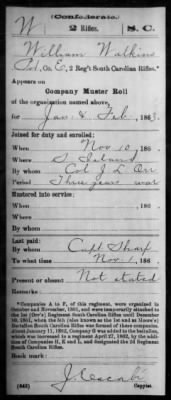 (Confederate.)
W 2 Rifles. S.C.
William Watkins
Pvt, Co. E, 2 Reg't South Carolina Rifles.*
Appears on
Company Muster Roll
of the organization named above,
for Jan & Feb, 1863.
Joined for duty and enrolled:
When Nov 10, 186
Where S Island
By whom Col J L Orr
Period Three years war
Mustered into service:
When , 186
Where
By whom
Last paid:
By whom Capt Sharp
To what time Nov 1, 186
Present or absent Not stated
Remarks:
*Companies A to F, of this regiment, were organized in
October and November, 1861, and were temporarily attached to
the 1st (Orr's) Regiment South Carolina Rifles until December
Battalion South Carolina Rifles was formed of these companies.
about January 11, 1862, Company G was added to the battalion,
which was increased to a regiment April 27, 1862, by the addi-
tion of Companies H, K and L, and designated the 2d Regiment
South Carolina Rifles.
Book mark:
(642) Copyist.